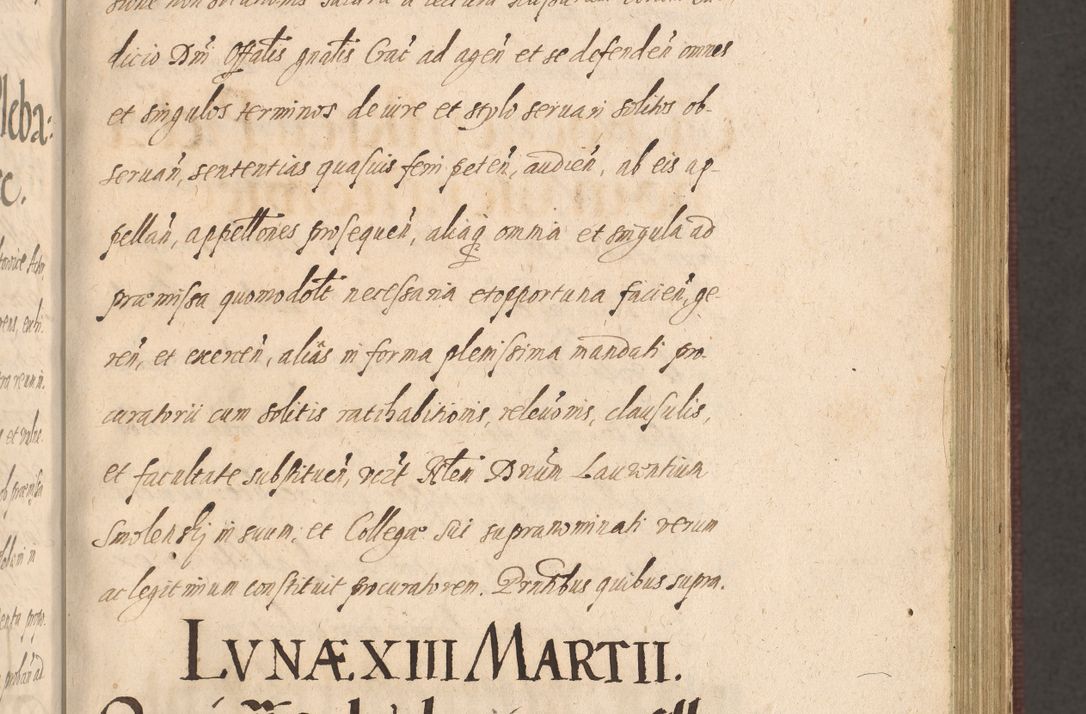 dicio Dni Offalis gnalis Crac ad agen et se defenden omnes
et singulos terminos de iure et stylo seruari solitos ob-
seruan, sententias quasuis ferri peten, audien, ab eis ap-
pellan, appellones prosequen, aliaq omnia et singula ad
præmissa quomodolt necessaria et opportuna facien, ge-
ren, et exercen, alias in forma plenissima mandati pro-
curatorii cum solitis ratihabitionis, releuonis, clausulis,
et facultate substituen, vczt Rten Dnum Laurentium
Smolenskj in suum, et Collegæ sui supranominati verum
ac legitimum constituit procuratorem. Prntibus quibus supra.
LVNÆ XIII MARTII.